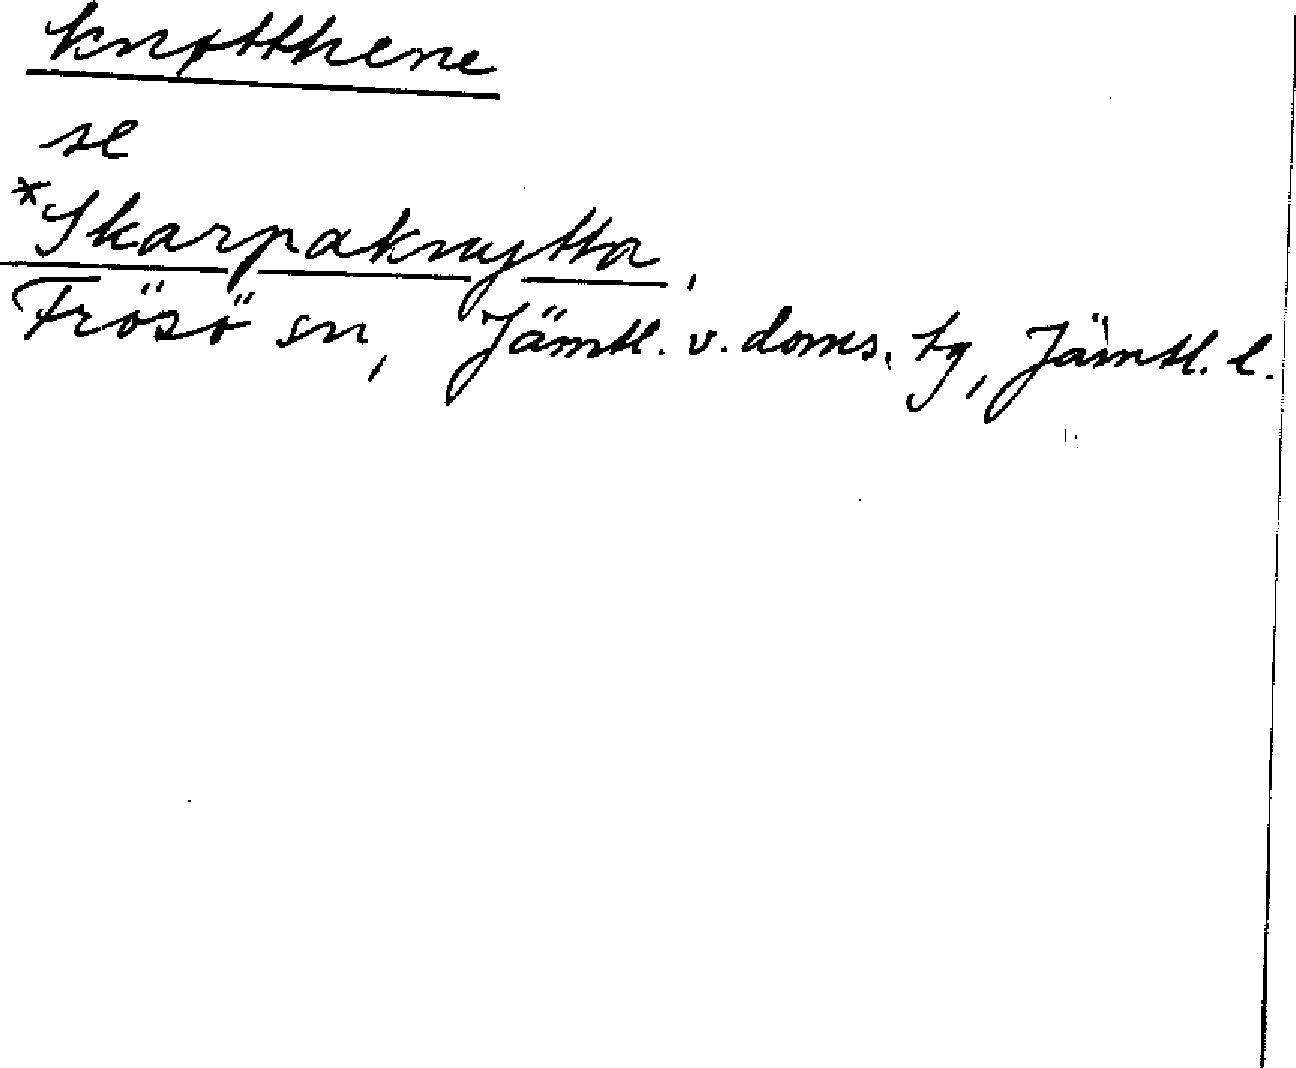 knøtthene
se
*Skarpaknytta,
Frösö sn, Jämtl. v. doms. tg, Jämtl. l.